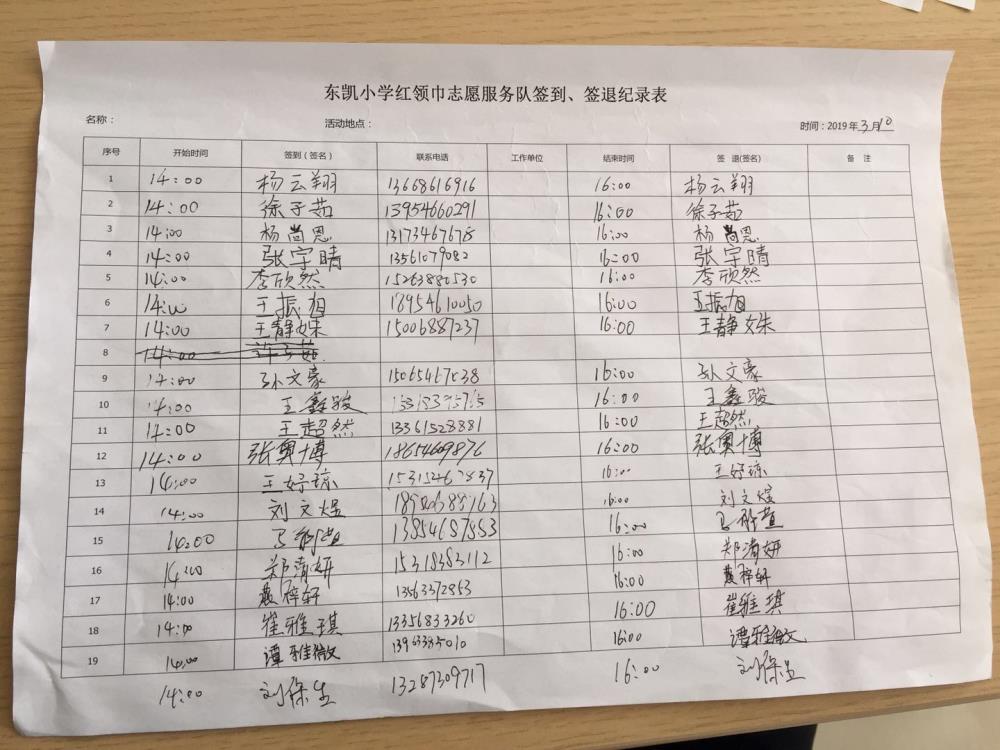 东凯小学红领巾志愿服务队签到、签退纪录表
名称： 活动地点： 时间：2019年3月10
序号 开始时间 签到（签名） 联系电话 工作单位 结束时间 签 退(签名) 备 注
1 14:00 杨云翔 13668616916 16:00 杨云翔
2 14:00 徐子茹 13954660291 16:00 徐子茹
3 14:00 杨尚恩 13173467678 16:00 杨尚恩
4 14:00 张宇晴 13561079082 16:00 张宇晴
5 14:00 李欣然 15263880530 16:00 李欣然
6 14:00 王振旭 18954610050 16:00 王振旭
7 14:00 王静姝 15006887237 16:00 王静姝
8 14:00
9 14:00 孙文豪 15065467038 16:00 孙文豪
10 14:00 王鑫骏 16:00 王鑫骏
11 14:00 王超然 13361528881 16:00 王超然
12 14:00 张奥博 18654609876 16:00 张奥博
13 14:00 王妤琼 16:00 王妤琼
14 14:00 刘文煜 16:00 刘文煜
15 14:00 13854687853 16:00
16 14:00 郑清妍 15318383112 16:00 郑清妍
17 14:00 燕梓轩 13563372853 16:00 燕梓轩
18 14:00 崔雅琪 13356833260 16:00 崔雅琪
19 14:00 谭雅微 13963385010 16:00 谭雅微
14:00 刘保生 13287309717 16:00 刘保生